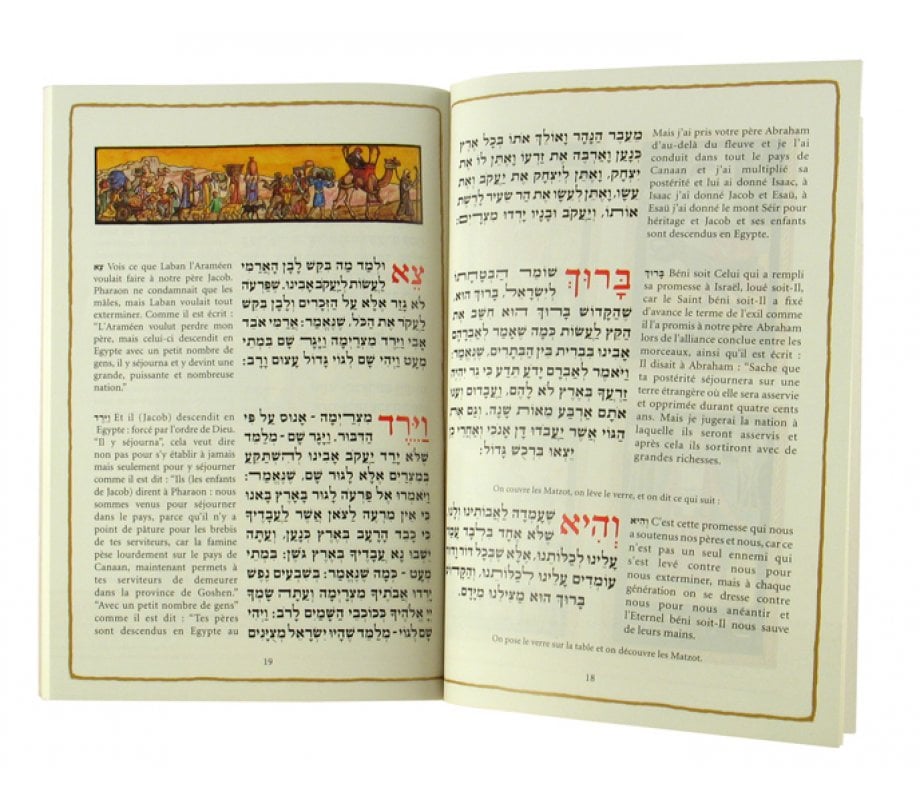 מֵעֵבֶר הַנָּהָר וָאוֹלֵךְ אוֹתוֹ בְּכָל אֶרֶץ
כְּנָעַן וָאַרְבֶּה אֶת זַרְעוֹ וָאֶתֵּן לוֹ אֶת
יִצְחָק, וָאֶתֵּן לְיִצְחָק אֶת יַעֲקֹב וְאֶת
עֵשָׂו, וָאֶתֵּן לְעֵשָׂו אֶת הַר שֵׂעִיר לָרֶשֶׁת
אוֹתוֹ, וְיַעֲקֹב וּבָנָיו יָרְדוּ מִצְרָיִם:
Mais j'ai pris votre père Abraham
d'au-delà du fleuve et je l'ai
conduit dans tout le pays de
Canaan et j'ai multiplié sa
postérité et lui ai donné Isaac, à
Isaac j'ai donné Jacob et Esaü, à
Esaü j'ai donné le mont Séir pour
héritage et Jacob et ses enfants
sont descendus en Egypte.
בָּרוּךְ שׁוֹמֵר הַבְטָחָתוֹ
לְיִשְׂרָאֵל, בָּרוּךְ הוּא,
שֶׁהַקָּדוֹשׁ בָּרוּךְ הוּא חִשֵּׁב אֶת
הַקֵּץ לַעֲשׂוֹת כְּמָה שֶׁאָמַר לְאַבְרָהָם
אָבִינוּ בִּבְרִית בֵּין הַבְּתָרִים, שֶׁנֶּאֱמַר:
וַיֹּאמֶר לְאַבְרָם יָדֹעַ תֵּדַע כִּי גֵר יִהְיֶה
זַרְעֲךָ בְּאֶרֶץ לֹא לָהֶם, וַעֲבָדוּם וְעִנּוּ
אֹתָם אַרְבַּע מֵאוֹת שָׁנָה. וְגַם אֶת
הַגּוֹי אֲשֶׁר יַעֲבֹדוּ דָּן אָנֹכִי וְאַחֲרֵי כֵן
יֵצְאוּ בִּרְכֻשׁ גָּדוֹל:
בָּרוּךְ Béni soit Celui qui a rempli
sa promesse à Israël, loué soit-Il,
car le Saint béni soit-Il a fixé
d'avance le terme de l'exil comme
il l'a promis à notre père Abraham
lors de l'alliance conclue entre les
morceaux, ainsi qu'il est écrit :
Il disait à Abraham : "Sache que
ta postérité séjournera sur une
terre étrangère où elle sera asservie
et opprimée durant quatre cents
ans. Mais je jugerai la nation à
laquelle ils seront asservis et
après cela ils sortiront avec de
grandes richesses.
On couvre les Matzot, on lève le verre, et on dit ce qui suit :
וְהִיא שֶׁעָמְדָה לַאֲבוֹתֵינוּ וְלָנוּ,
שֶׁלֹּא אֶחָד בִּלְבָד עָמַד
עָלֵינוּ לְכַלּוֹתֵנוּ, אֶלָּא שֶׁבְּכָל דּוֹר וָדוֹר
עוֹמְדִים עָלֵינוּ לְכַלּוֹתֵנוּ, וְהַקָּדוֹשׁ
בָּרוּךְ הוּא מַצִּילֵנוּ מִיָּדָם.
וְהִיא C'est cette promesse qui nous
a soutenus nos pères et nous, car ce
n'est pas un seul ennemi qui
s'est levé contre nous pour
nous exterminer, mais à chaque
génération on se dresse contre
nous pour nous anéantir et
l'Eternel béni soit-Il nous sauve
de leurs mains.
On pose le verre sur la table et on découvre les Matzot.
18
צֵא וּלְמַד מַה בִּקֵּשׁ לָבָן הָאֲרַמִּי
לַעֲשׂוֹת לְיַעֲקֹב אָבִינוּ. שֶׁפַּרְעֹה
לֹא גָזַר אֶלָּא עַל הַזְּכָרִים וְלָבָן בִּקֵּשׁ
לַעֲקֹר אֶת הַכֹּל, שֶׁנֶּאֱמַר: אֲרַמִּי אֹבֵד
אָבִי וַיֵּרֶד מִצְרַיְמָה וַיָּגָר שָׁם בִּמְתֵי
מְעָט וַיְהִי שָׁם לְגוֹי גָּדוֹל עָצוּם וָרָב:
צֵא Vois ce que Laban l'Araméen
voulait faire à notre père Jacob.
Pharaon ne condamnait que les
mâles, mais Laban voulait tout
exterminer. Comme il est écrit :
"L'Araméen voulut perdre mon
père, mais celui-ci descendit en
Egypte avec un petit nombre de
gens, il y séjourna et y devint une
grande, puissante et nombreuse
nation."
וַיֵּרֶד מִצְרַיְמָה - אָנוּס עַל פִּי
הַדִּבּוּר. וַיָּגָר שָׁם - מְלַמֵּד
שֶׁלֹּא יָרַד יַעֲקֹב אָבִינוּ לְהִשְׁתַּקֵּעַ
בְּמִצְרַיִם אֶלָּא לָגוּר שָׁם, שֶׁנֶּאֱמַר:
וַיֹּאמְרוּ אֶל פַּרְעֹה לָגוּר בָּאָרֶץ בָּאנוּ
כִּי אֵין מִרְעֶה לַצֹּאן אֲשֶׁר לַעֲבָדֶיךָ
כִּי כָבֵד הָרָעָב בְּאֶרֶץ כְּנָעַן, וְעַתָּה
יֵשְׁבוּ נָא עֲבָדֶיךָ בְּאֶרֶץ גֹּשֶׁן: בִּמְתֵי
מְעָט - כְּמָה שֶׁנֶּאֱמַר: בְּשִׁבְעִים נֶפֶשׁ
יָרְדוּ אֲבֹתֶיךָ מִצְרָיְמָה וְעַתָּה שָׂמְךָ
יְיָ אֱלֹהֶיךָ כְּכוֹכְבֵי הַשָּׁמַיִם לָרֹב: וַיְהִי
שָׁם לְגוֹי - מְלַמֵּד שֶׁהָיוּ יִשְׂרָאֵל מְצֻיָּנִים
וַיֵּרֶד Et il (Jacob) descendit en
Egypte : forcé par l'ordre de Dieu.
"Il y séjourna", cela veut dire
non pas pour s'y établir à jamais
mais seulement pour y séjourner
comme il est dit : "Ils (les enfants
de Jacob) dirent à Pharaon : nous
sommes venus pour séjourner
dans le pays, parce qu'il n'y a
point de pâture pour les brebis
de tes serviteurs, car la famine
pèse lourdement sur le pays de
Canaan, maintenant permets à
tes serviteurs de demeurer
dans la province de Goshen."
"Avec un petit nombre de gens"
comme il est dit : "Tes pères
sont descendus en Egypte au
19